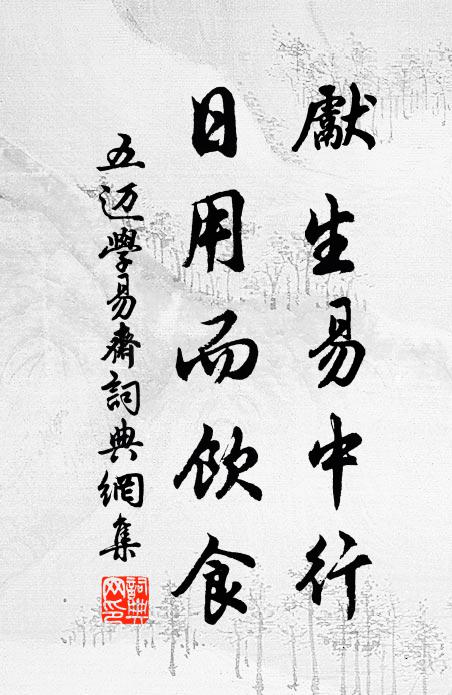 獻生易中行
日用而飲食
五迈學易齋詞典網集
詞典
网印